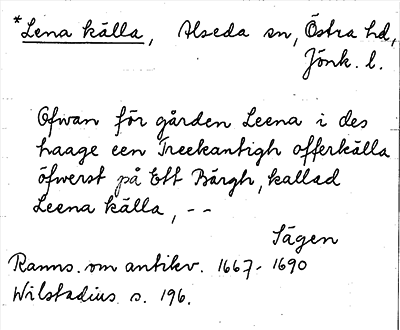 *Lena källa, Alseda sn, Östra hd,
Jönk. l.
Ofwan för gården Leena i des
haage een Treekantigh offerkälla
öfwerst på Ett Bärgh, kallad
Leena källa, --
Sägen
Ranns. om antikv. 1667-1690
Wilstadius s. 196.